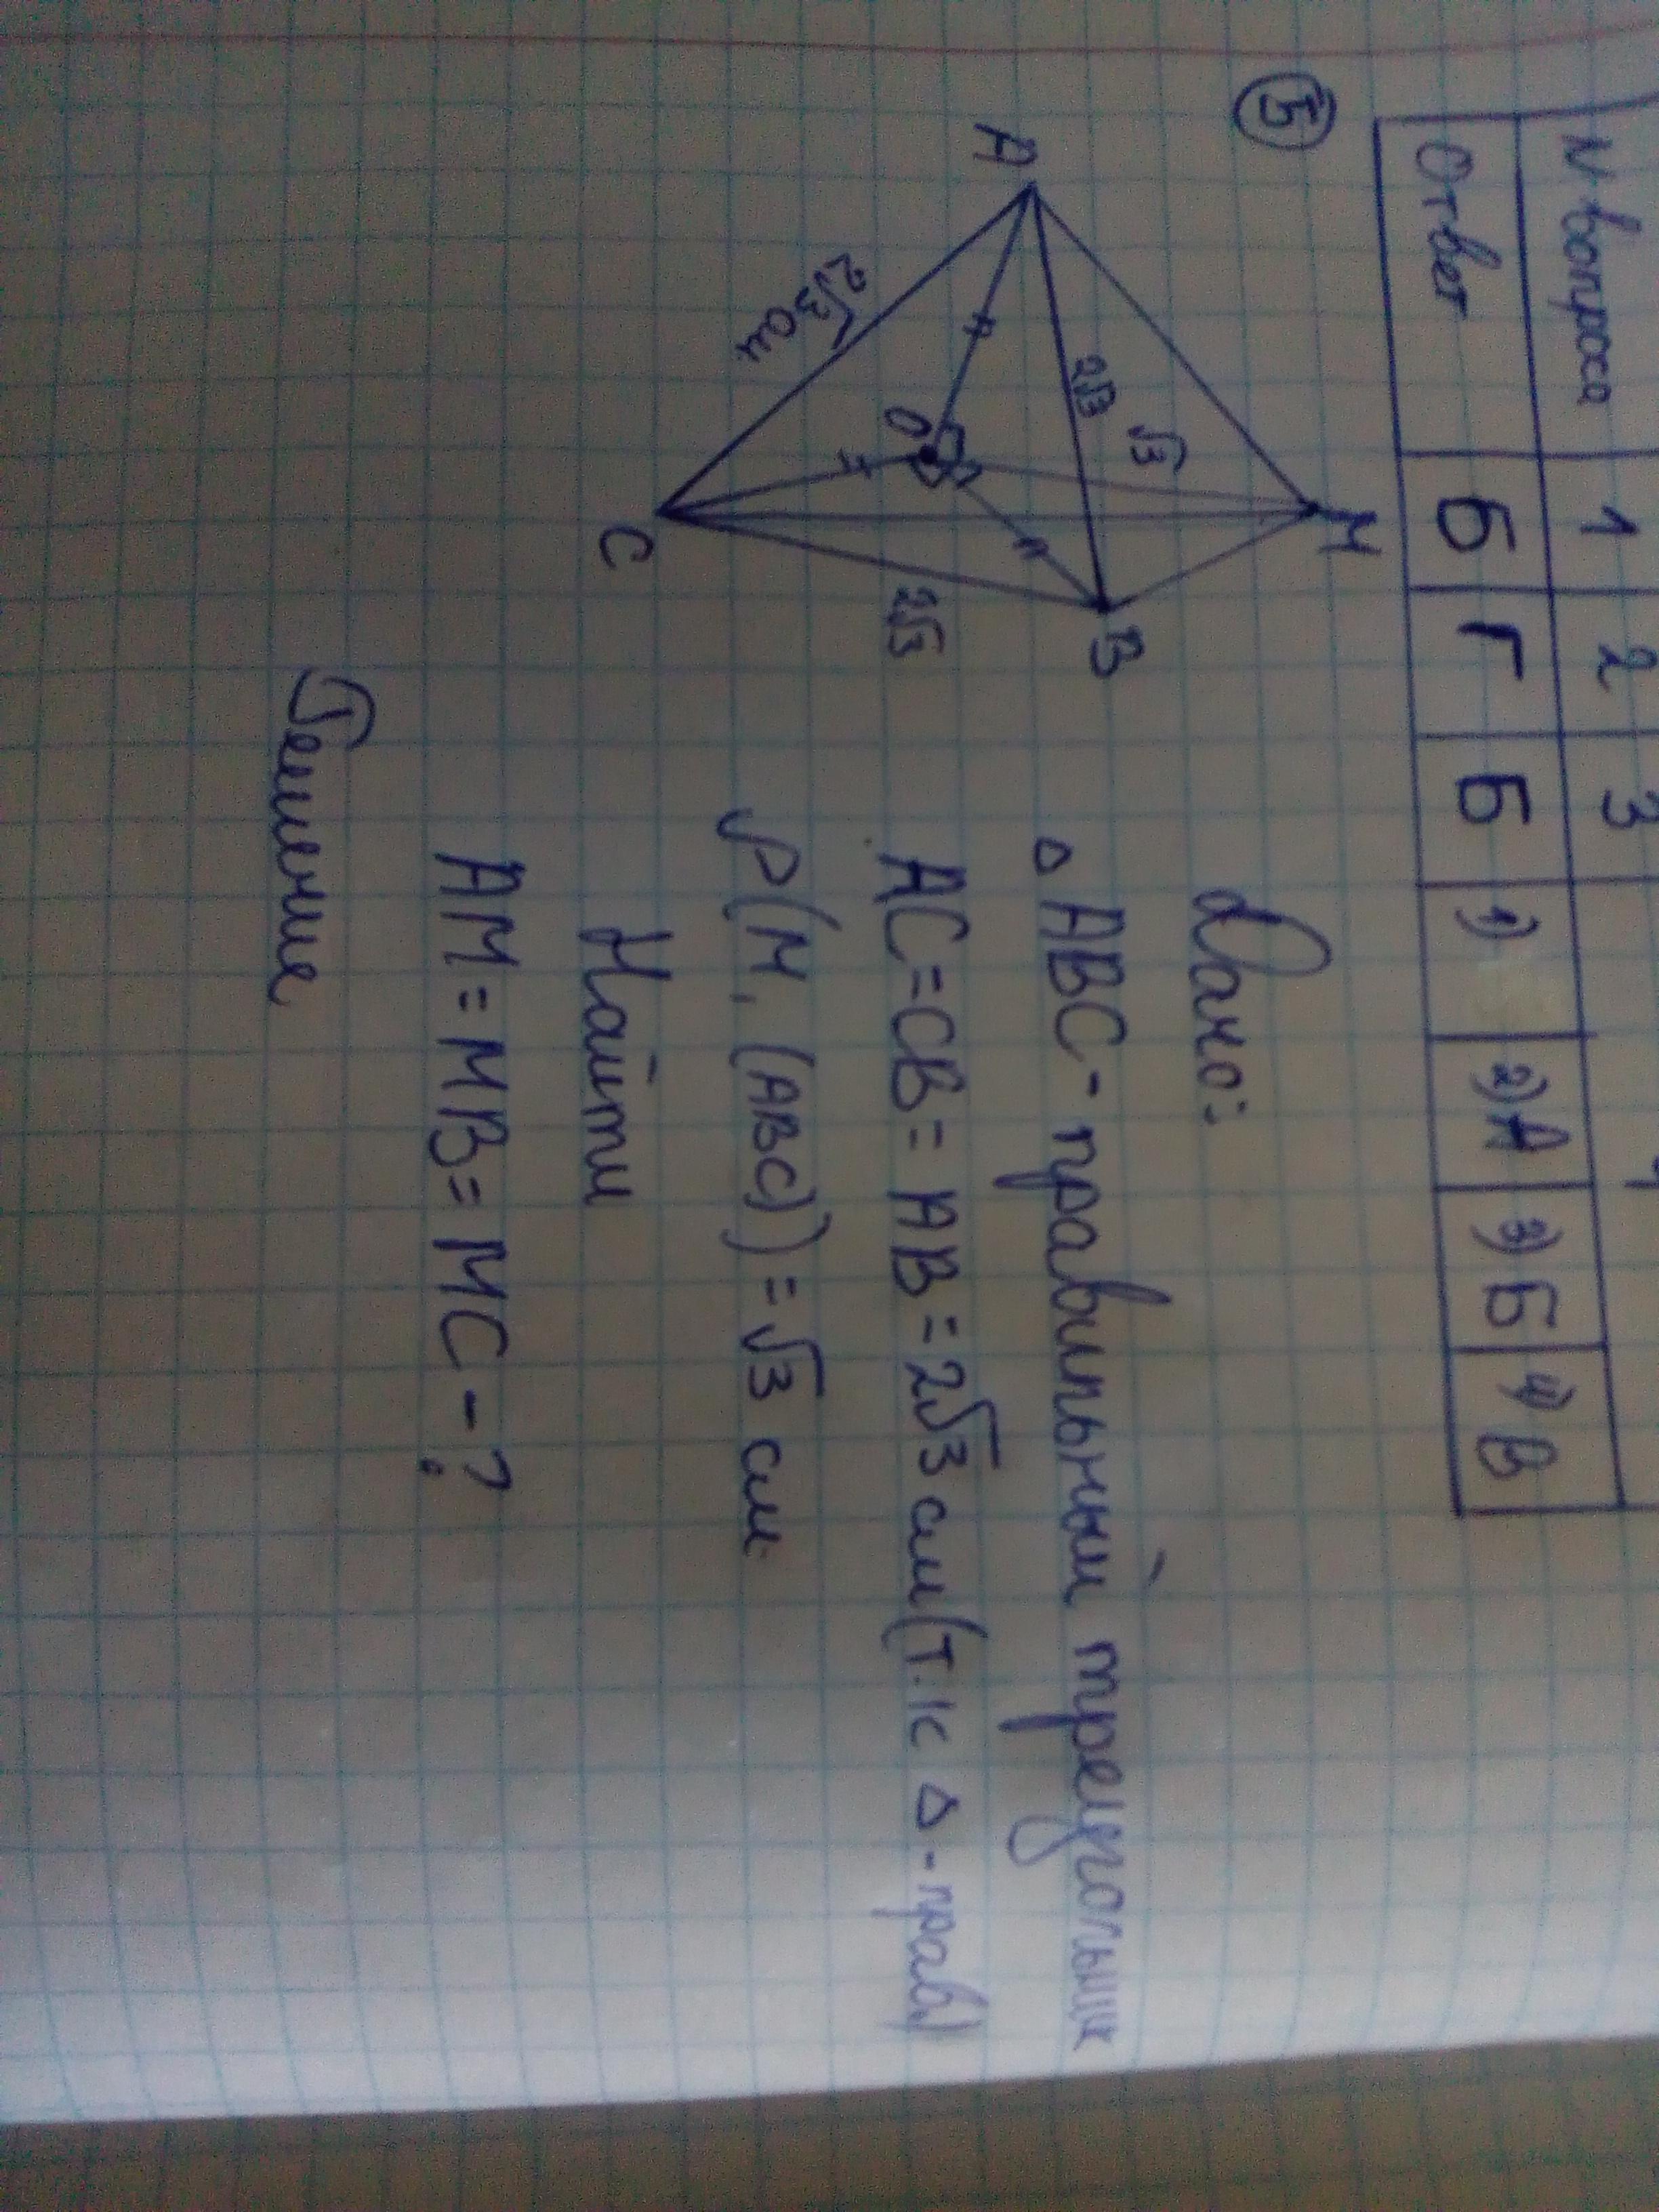 N вопроса 1 2 3 4
Ответ Б Г Б 1) 2) А 3) Б 4) В
5
M
A
B
C
O
√3
2√3
2√3
2√3 см
Дано:
△ ABC - правильный треугольник
AC = CB = AB = 2√3 см (т.к △ - прав.)
ρ(M, (ABC)) = √3 см
Найти
AM = MB = MC - ?
Решение